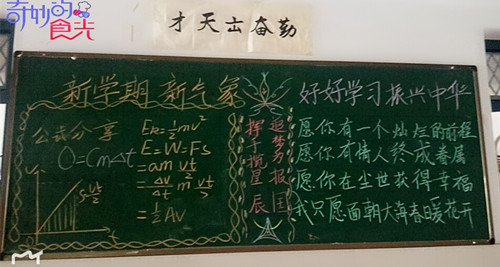 奇妙的食光
才天出奋勤
新学期 新气象
好好学习振兴中华
公式分享
Q=Cm△t
Ek=½mv²
E=W=Fs
=am vt/2
=Δv/Δt m² vt/2
=½Av
vt/2
追梦为报国
挥手揽星辰
愿你有一个灿烂的前程
愿你有情人终成眷属
愿你在尘世获得幸福
我只愿面朝大海春暖花开